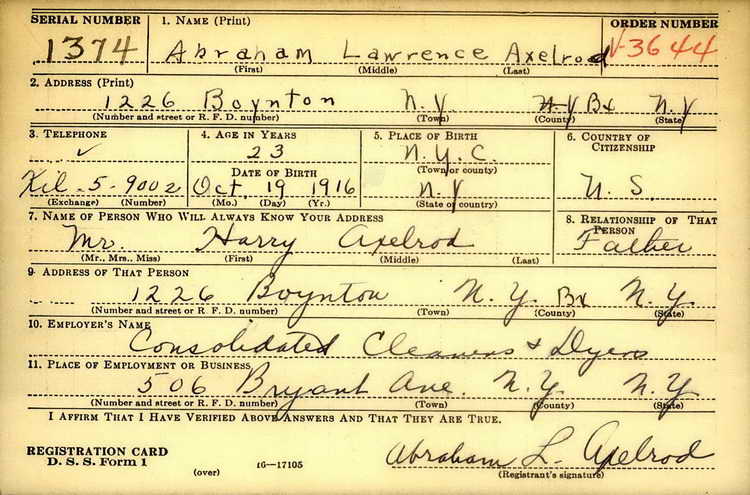 SERIAL NUMBER 1. NAME (Print) ORDER NUMBER
1374 Abraham Lawrence Axelrod V-3644
(First) (Middle) (Last)
2. ADDRESS (Print)
1226 Boynton N.Y N.Y Bx N.Y
(Number and street or R. F. D. number) (Town) (County) (State)
3. TELEPHONE 4. AGE IN YEARS 5. PLACE OF BIRTH 6. COUNTRY OF CITIZENSHIP
✓ 23 N.Y.C.
DATE OF BIRTH (Town or county)
Kil-5-9002 Oct. 19 1916 N.Y U.S.
(Exchange) (Number) (Mo.) (Day) (Yr.) (State or country)
7. NAME OF PERSON WHO WILL ALWAYS KNOW YOUR ADDRESS 8. RELATIONSHIP OF THAT PERSON
Mr. Harry Axelrod Father
(Mr., Mrs., Miss) (First) (Middle) (Last)
9. ADDRESS OF THAT PERSON
1226 Boynton N.Y. Bx N.Y.
(Number and street or R. F. D. number) (Town) (County) (State)
10. EMPLOYER'S NAME
Consolidated Cleaners & Dyers
11. PLACE OF EMPLOYMENT OR BUSINESS
506 Bryant Ave. N.Y. N.Y
(Number and street or R. F. D. number) (Town) (County) (State)
I AFFIRM THAT I HAVE VERIFIED ABOVE ANSWERS AND THAT THEY ARE TRUE.
REGISTRATION CARD Abraham L. Axelrod
D. S. S. Form 1 (over) 16—17105 (Registrant's signature)